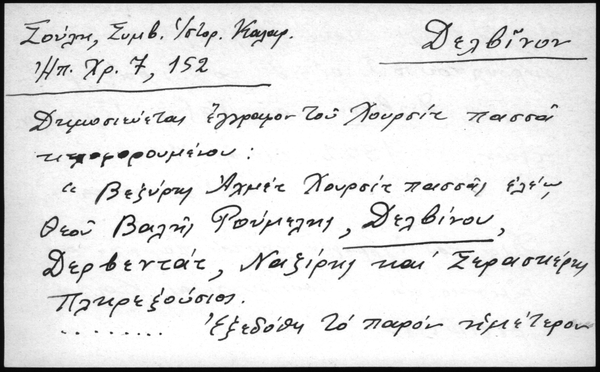 Σούλη, Συμβ. Ἱστορ. Καλαρ.
Ἠπ. Χρ. 7, 152
Δελβῖνον
Δημοσιεύεται ἔγγραφον τοῦ Χουρσὶτ πασσᾶ
:
" Βεζύρης Ἀχμὲτ Χουρσὶτ πασσᾶς ἐλέῳ
Θεοῦ Βαλῆς Ρούμελης, Δελβίνου,
Δερβεντὰτ, Ναζίρης καὶ Σερασκέρης
Πληρεξούσιος.
......... Ἐξεδόθη τὸ παρὸν ἡμέτερον